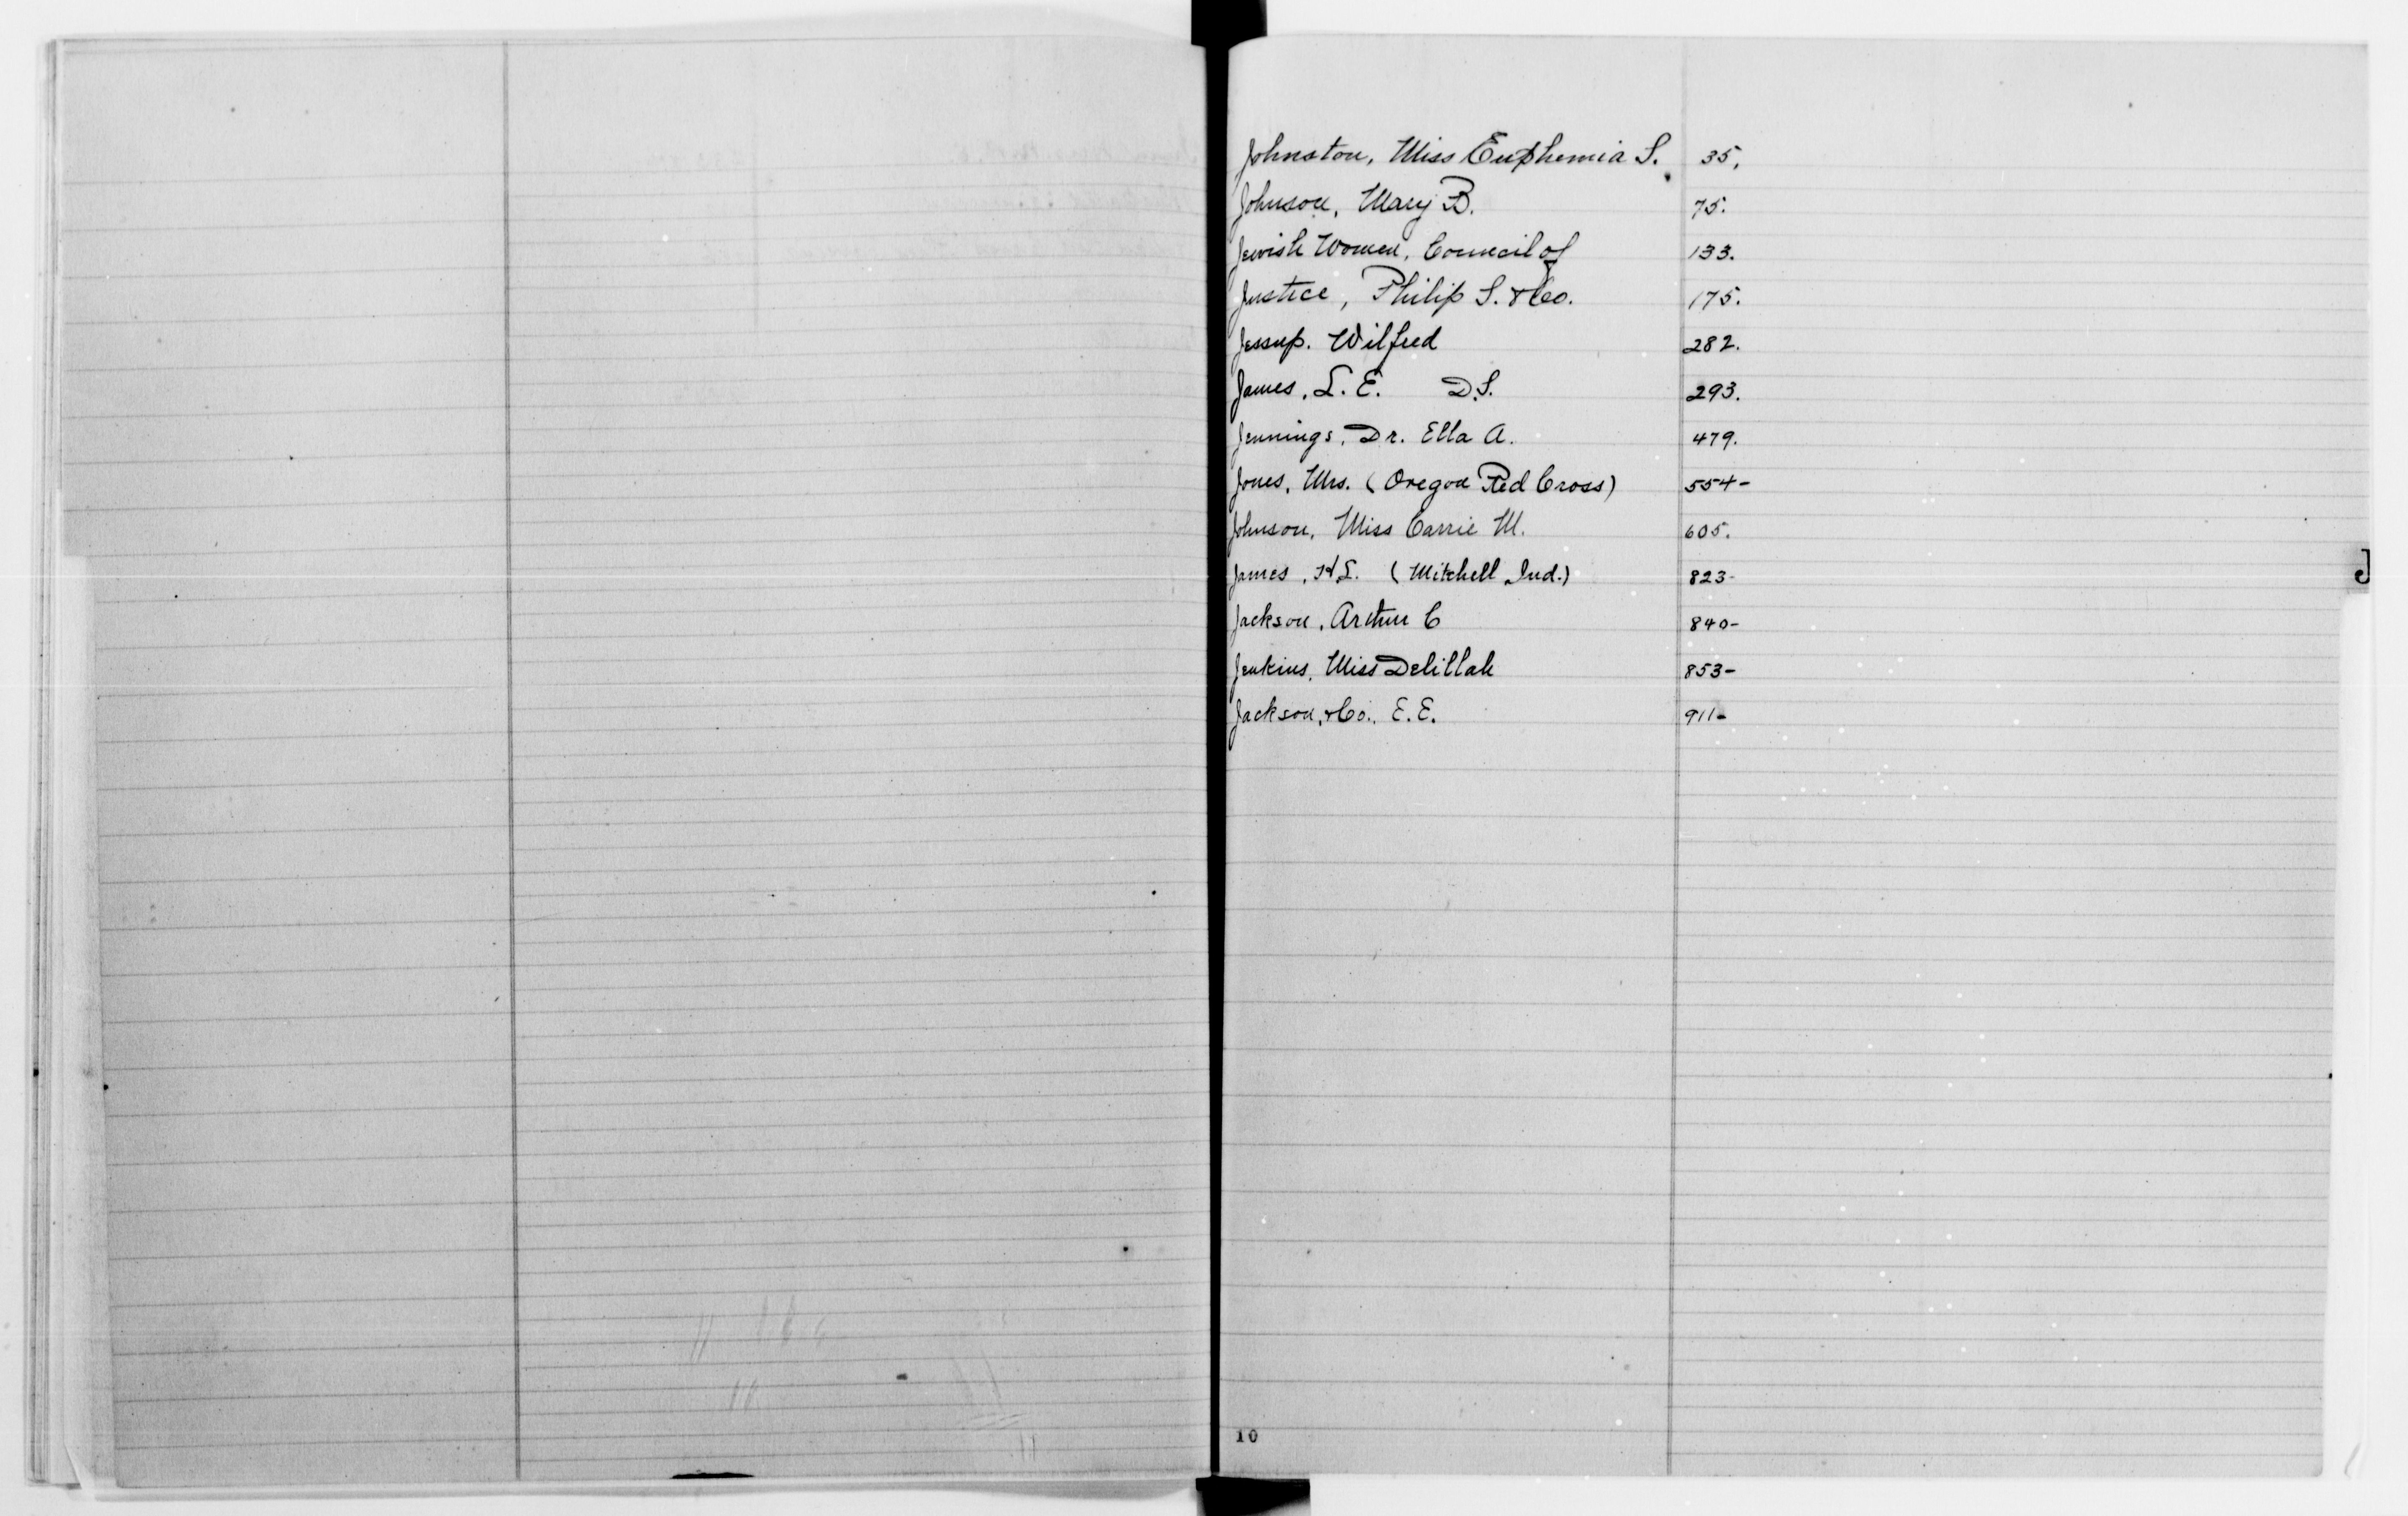 Johnston, Miss Euphemia S. 35.
Johnson, Mary B. 75.
Jewish Women, Council of 133.
Justice, Philip S. & Co. 175.
Jessup. Wilfred 282.
James, L. E. D.S. 293.
Jennings, Dr. Ella A. 479.
Jones, Mrs. (Oregon Red Cross) 554-
Johnson, Miss Carrie M. 605.
James, H.L. (Mitchell, Ind.) 823-
Jackson, Arthur C 840-
Jenkins, Miss Delillah 853-
Jackson, & Co., E. E. 911-
J
10